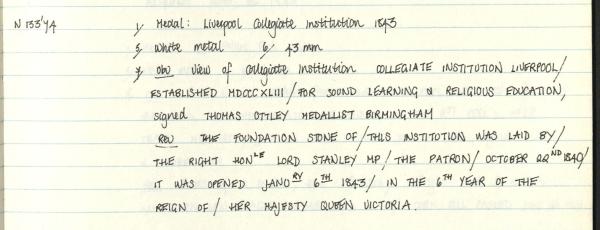 N 133'4A 1/ Medal: Liverpool Collegiate Institution 1843
5/ White metal 6/ 43 mm
7/ Obv View of Collegiate Institution COLLEGIATE INSTITUTION LIVERPOOL/
ESTABLISHED MDCCCXLIII / FOR SOUND LEARNING & RELIGIOUS EDUCATION,
signed THOMAS OTTLEY MEDALLIST BIRMINGHAM
Rev THE FOUNDATION STONE OF / THIS INSTITUTION WAS LAID BY/
THE RIGHT HONLE LORD STANLEY MP / THE PATRON / OCTOBER 22ND 1840/
IT WAS OPENED JANORY 6TH 1843 / IN THE 6TH YEAR OF THE
REIGN OF / HER MAJESTY QUEEN VICTORIA.